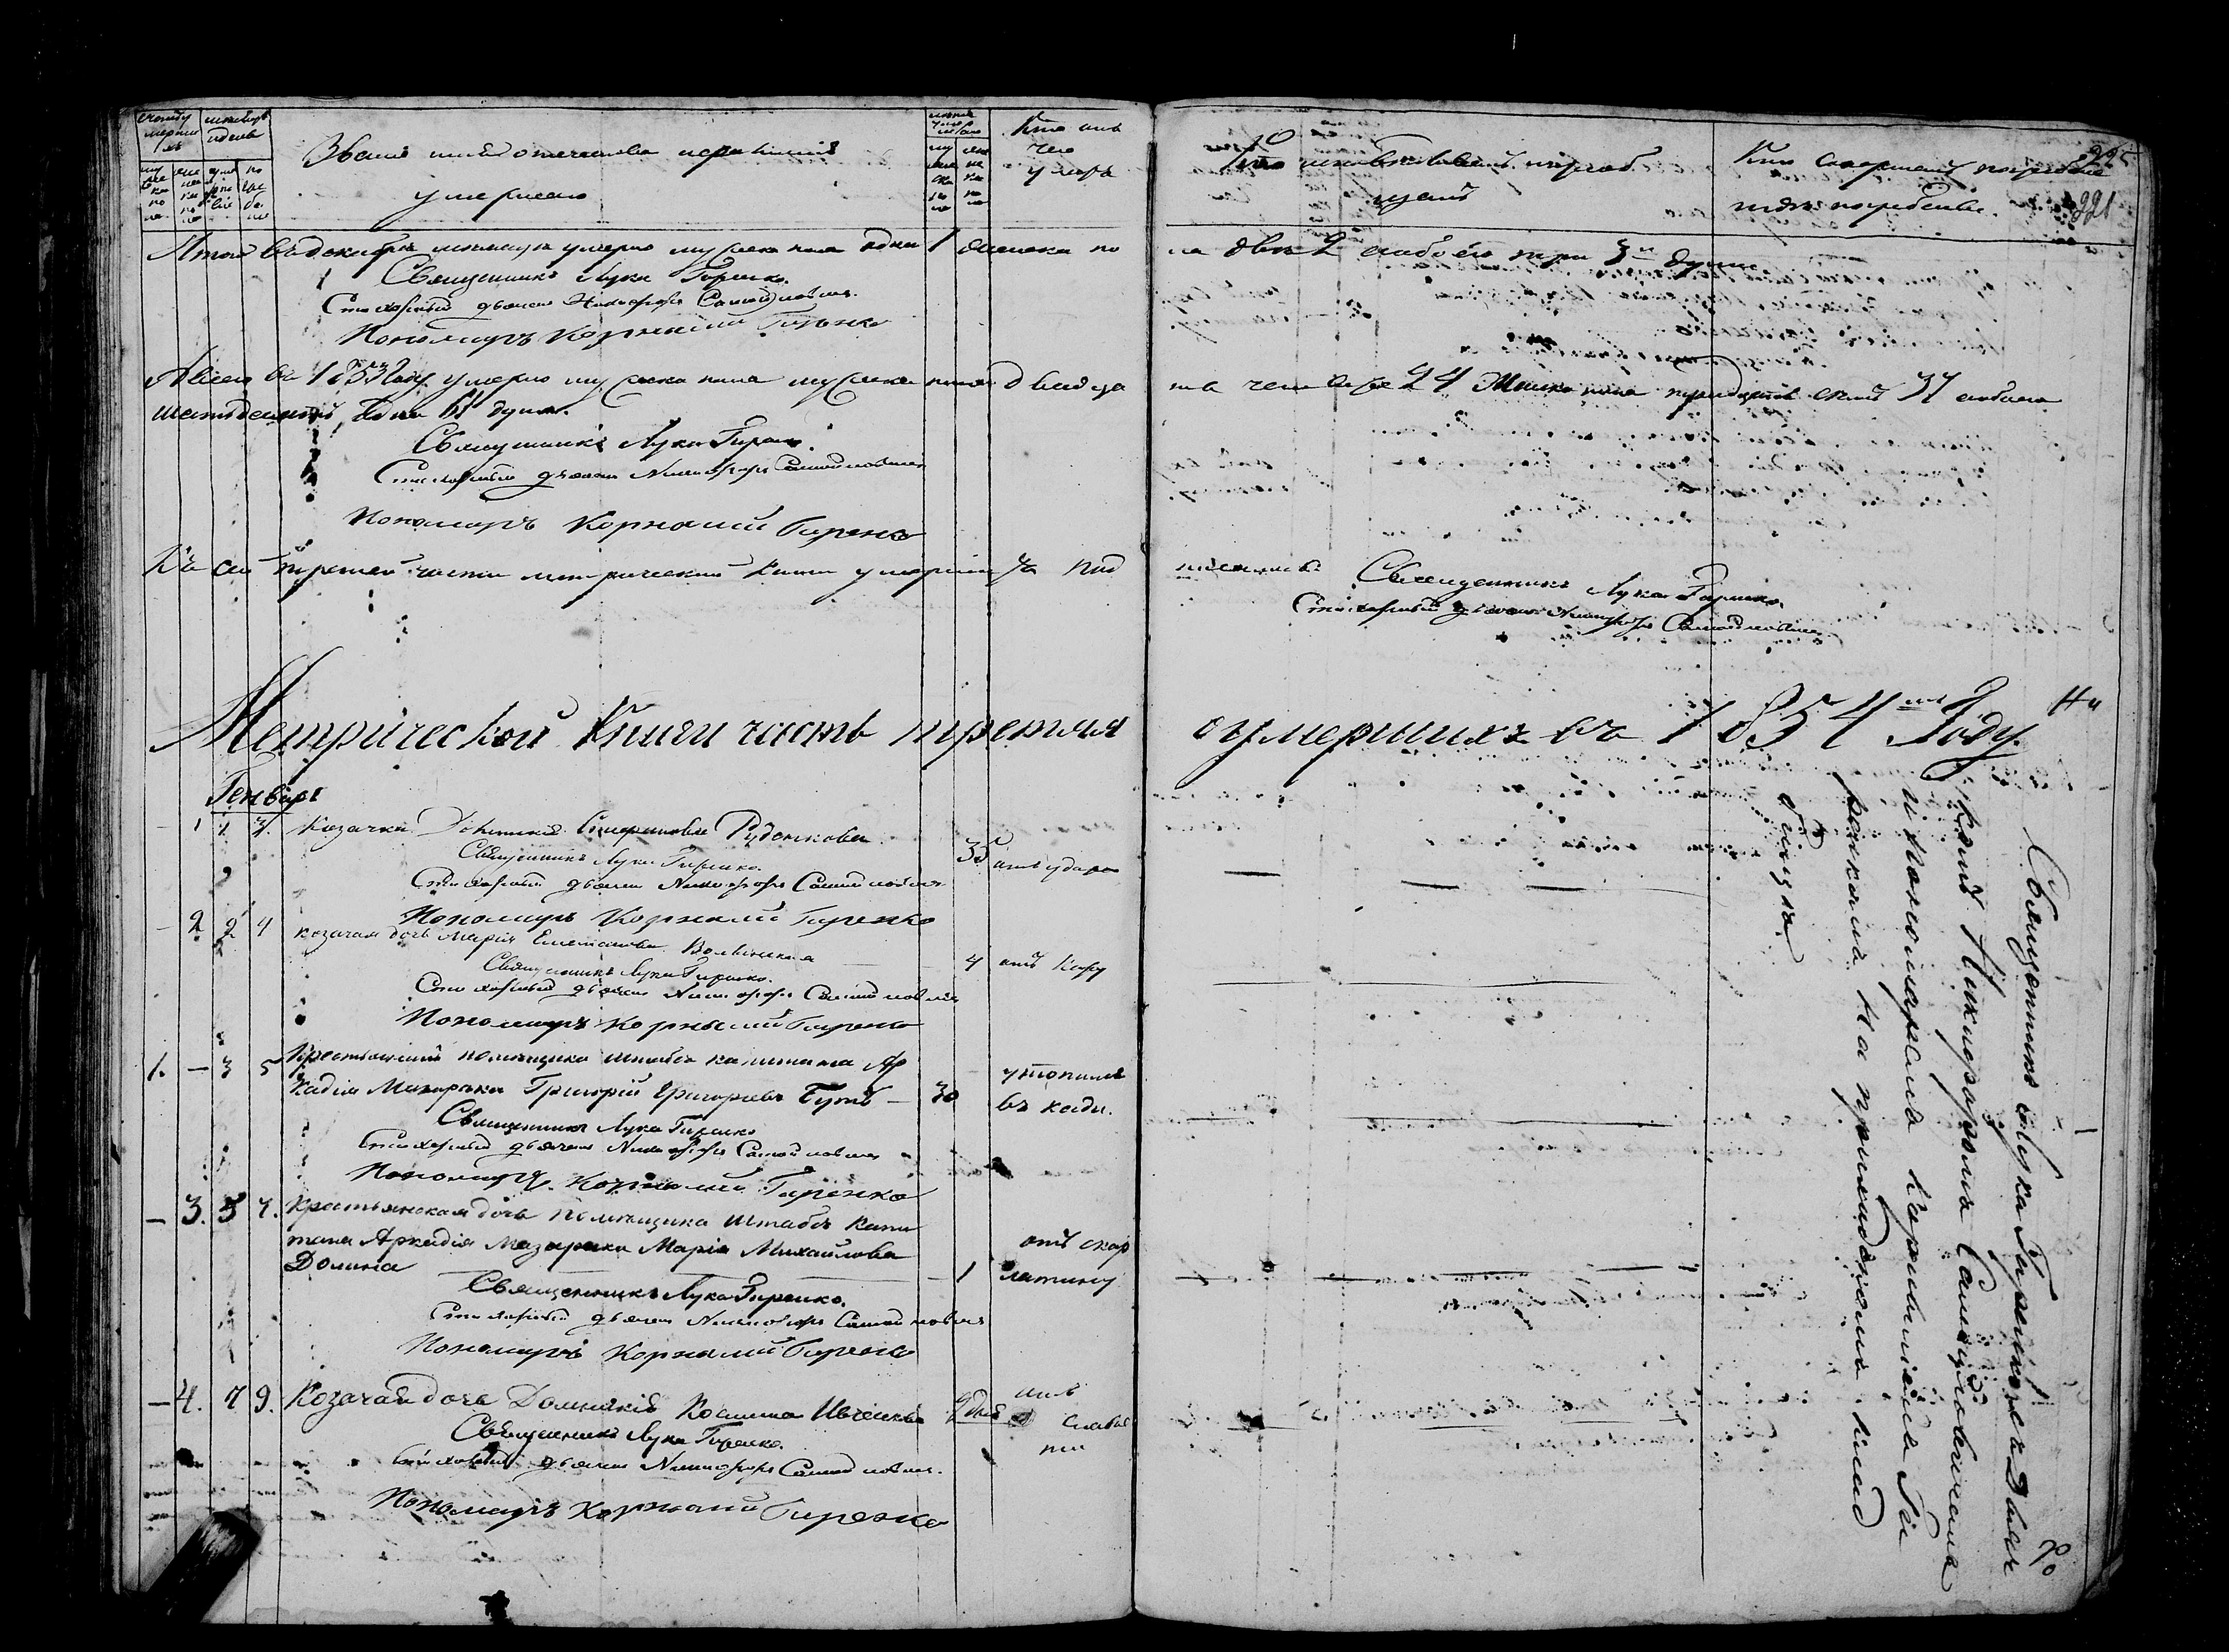 Званіе имя отечество и прозваніе
умершаго
Кто отъ
чего
умеръ
Кто исповѣдывалъ и пріоб
щалъ
Кто совершалъ погребеніе
и гдѣ погребены
225
221
Итого въ декабрѣ мѣсяцѣ умерло мужеска пола одна 1 женска по
ла двѣ 2 обоего три 3 души
Священникъ Лука Гиренко.
Стихарный дьячекъ Никифоръ Самойловичъ.
Пономарь Корнилій Гиренко
А всего въ 1853 Году умерло мужеска пола двадца
ть четыре 24 Женска пола тридцать семь 37 обоего
шестьдесятъ одна 61 душа.
Священникъ Лука Гиренко.
Стихарный дьячекъ Никифоръ Самойловичъ
Пономарь Корнилій Гиренко
Къ сей третей части метрической книги умершихъ под
писались
Священникъ Лука Гиренко.
Стихарный дьячекъ Никифоръ Самойловичъ
Метрической Книги часть третяя
о умершихъ въ 1854 Году.
На
Генварь
1 1 3. Козачка Домникія Руденкова 35 отъ удара
Священникъ Лука Гиренко.
Стихарный дьячекъ Никифоръ Самойловичъ
Пономарь Корнилій Гиренко
— 2 2 4 козачая дочь Марія Волынская 4 отъ кору
Священникъ Лука Гиренко.
Стихарный дьячекъ Никифоръ Самойловичъ
Пономарь Корнилій Гиренко
1. — 3 5 Крестьянинъ помѣщика штабсъ капитана Ар
кадія Мазараки Григорій Григорьевъ Бутъ — 30
утопился
въ води.
Священникъ Лука Гиренко
Стихарный дьячекъ Никифоръ Самойловичъ
Пономарь Корнилій Гиренко
— 3. 5 7. Крестьянская дочь помѣщика Штабсъ Капи
тана Аркадія Мазараки Марія Михайлова
Долина — 1
отъ скар
латину
Священникъ Лука Гиренко.
Стихарный дьячекъ Никифоръ Самойловичъ
Пономарь Корнилій Гиренко
— 4. 7 9. Козачая дочь Домникія Косьмина Ивченкова 9 дней
отъ
слабос
ти
Священникъ Лука Гиренко.
Стихарный дьячекъ Никифоръ Самойловичъ.
Пономарь Корнилій Гиренко
Священникъ Лука Гиренко съ Дьяч
комъ Никифоромъ Самойловичемъ
и пономаремъ Корниліемъ Ги
ренкомъ на приходскомъ клад
бищѣ